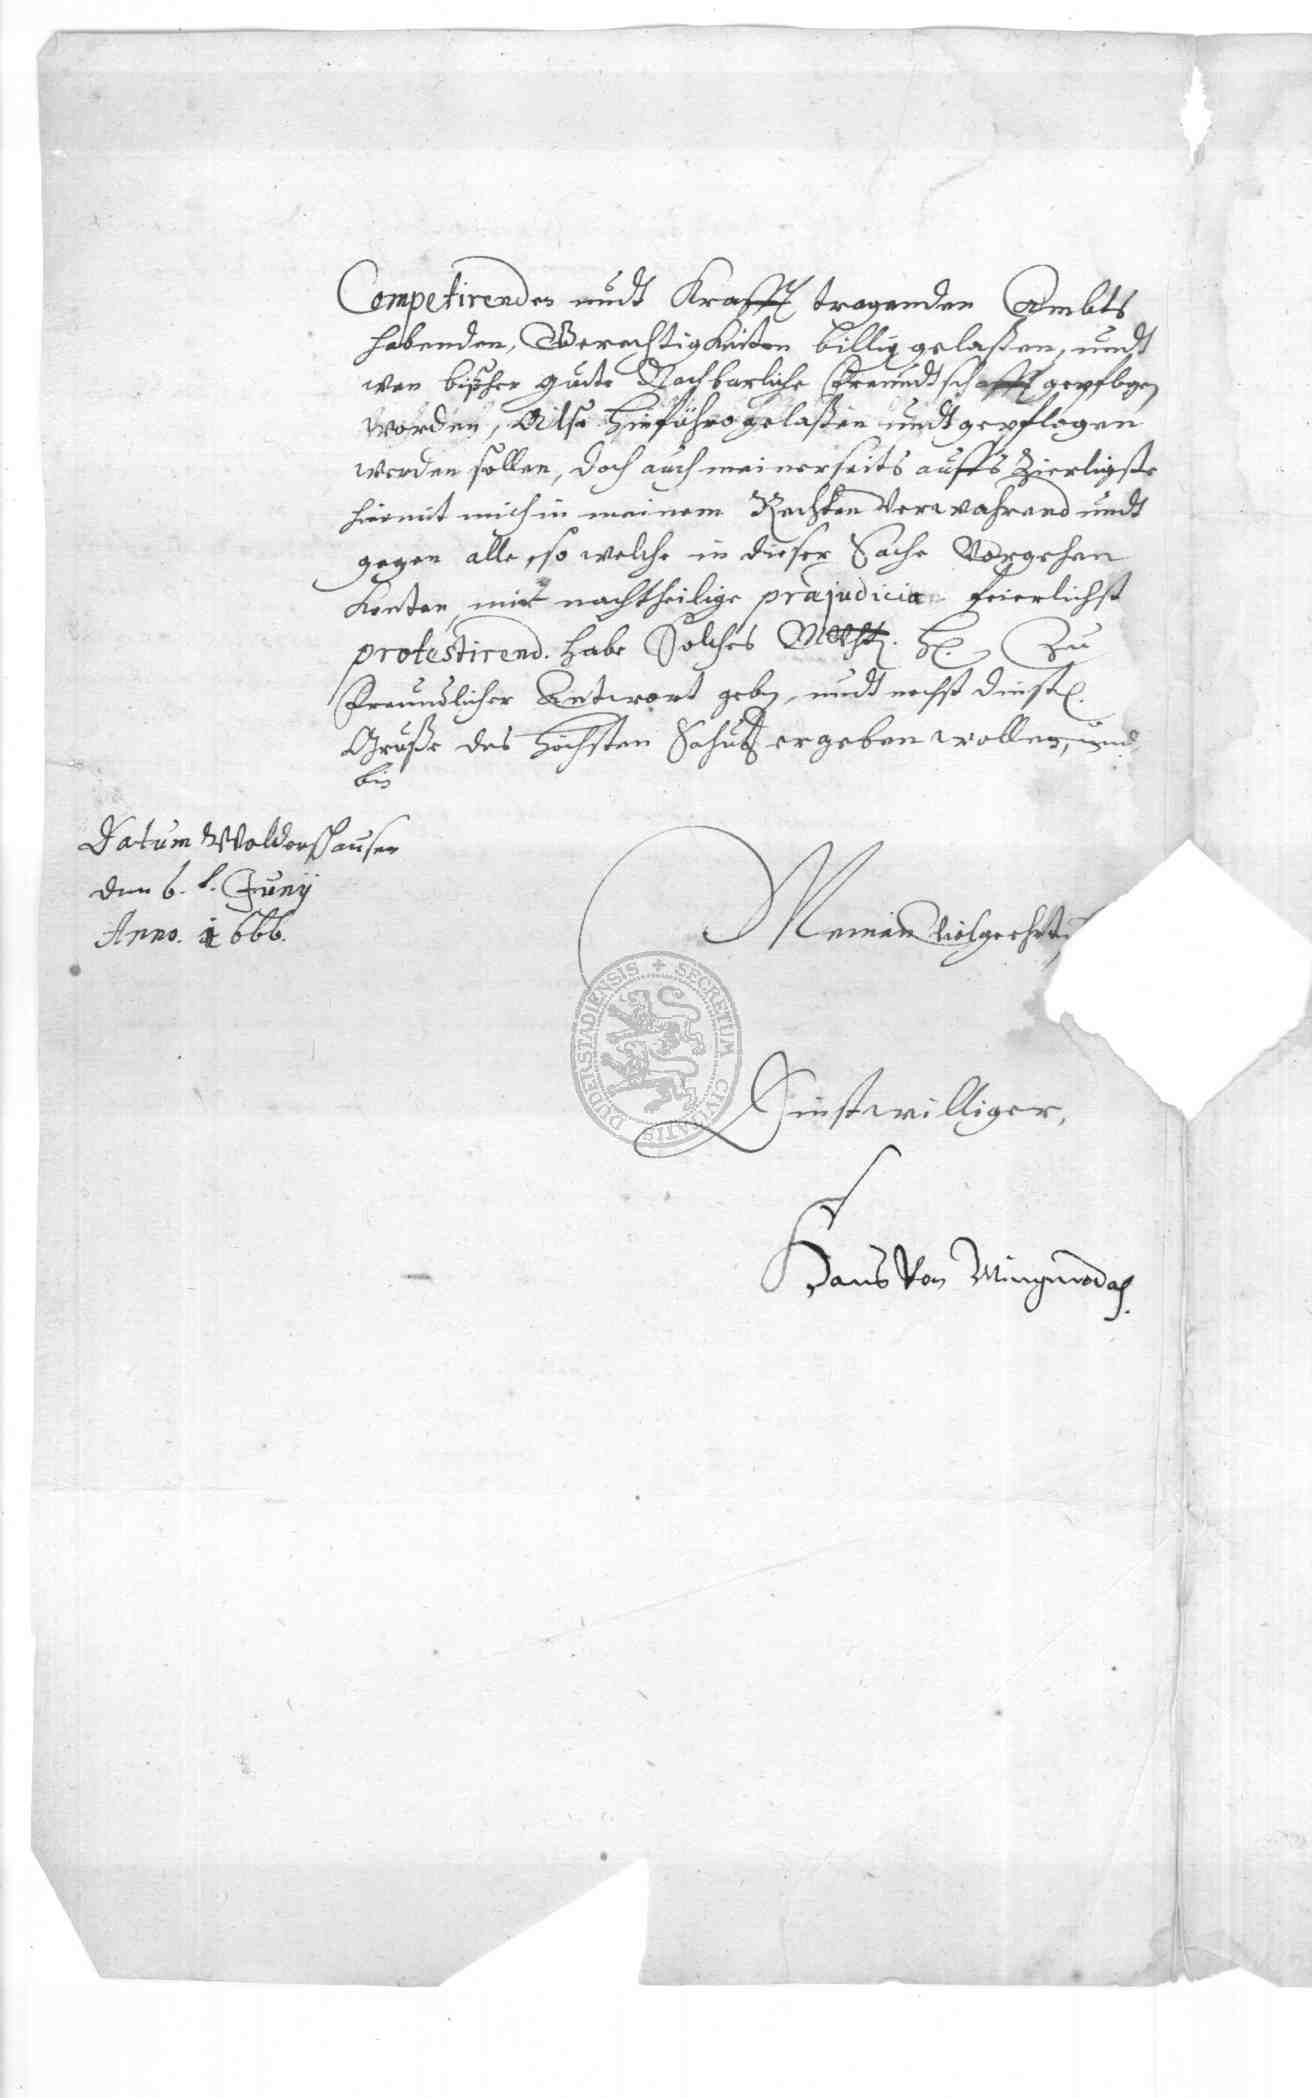 Competirenden undt Krafft tragenden Ambts
habenden, Gerechtigkeiten billig gelaßen, undt
wan bißher gute Nachbarliche Freundtschafft gepflogen
worden, Also hinführo gelaßen undt gepflogen
werden sollen, doch auch meinerseits auffs Zierligste
hiermit mich in meinem Rechten Verwahrend undt
gegen alle, so welche in dieser Sache Vorgehen
Konten, mir nachtheilige præjudicia feierlichst
protestirend. habe Solches H. Zu
Freundlicher Antwort geben, undt nechst dinstl.
Gruße des Höchsten Schutz ergeben wollen, und
bin
Datum Wolderßhausen
den 6. t. Junÿ
Anno. 1666.
Meines Vielgeehrt
Dinstwilliger,
Hans Von Mingerode
DUDERSTADIENSIS + SECRETUM CIVITATIS